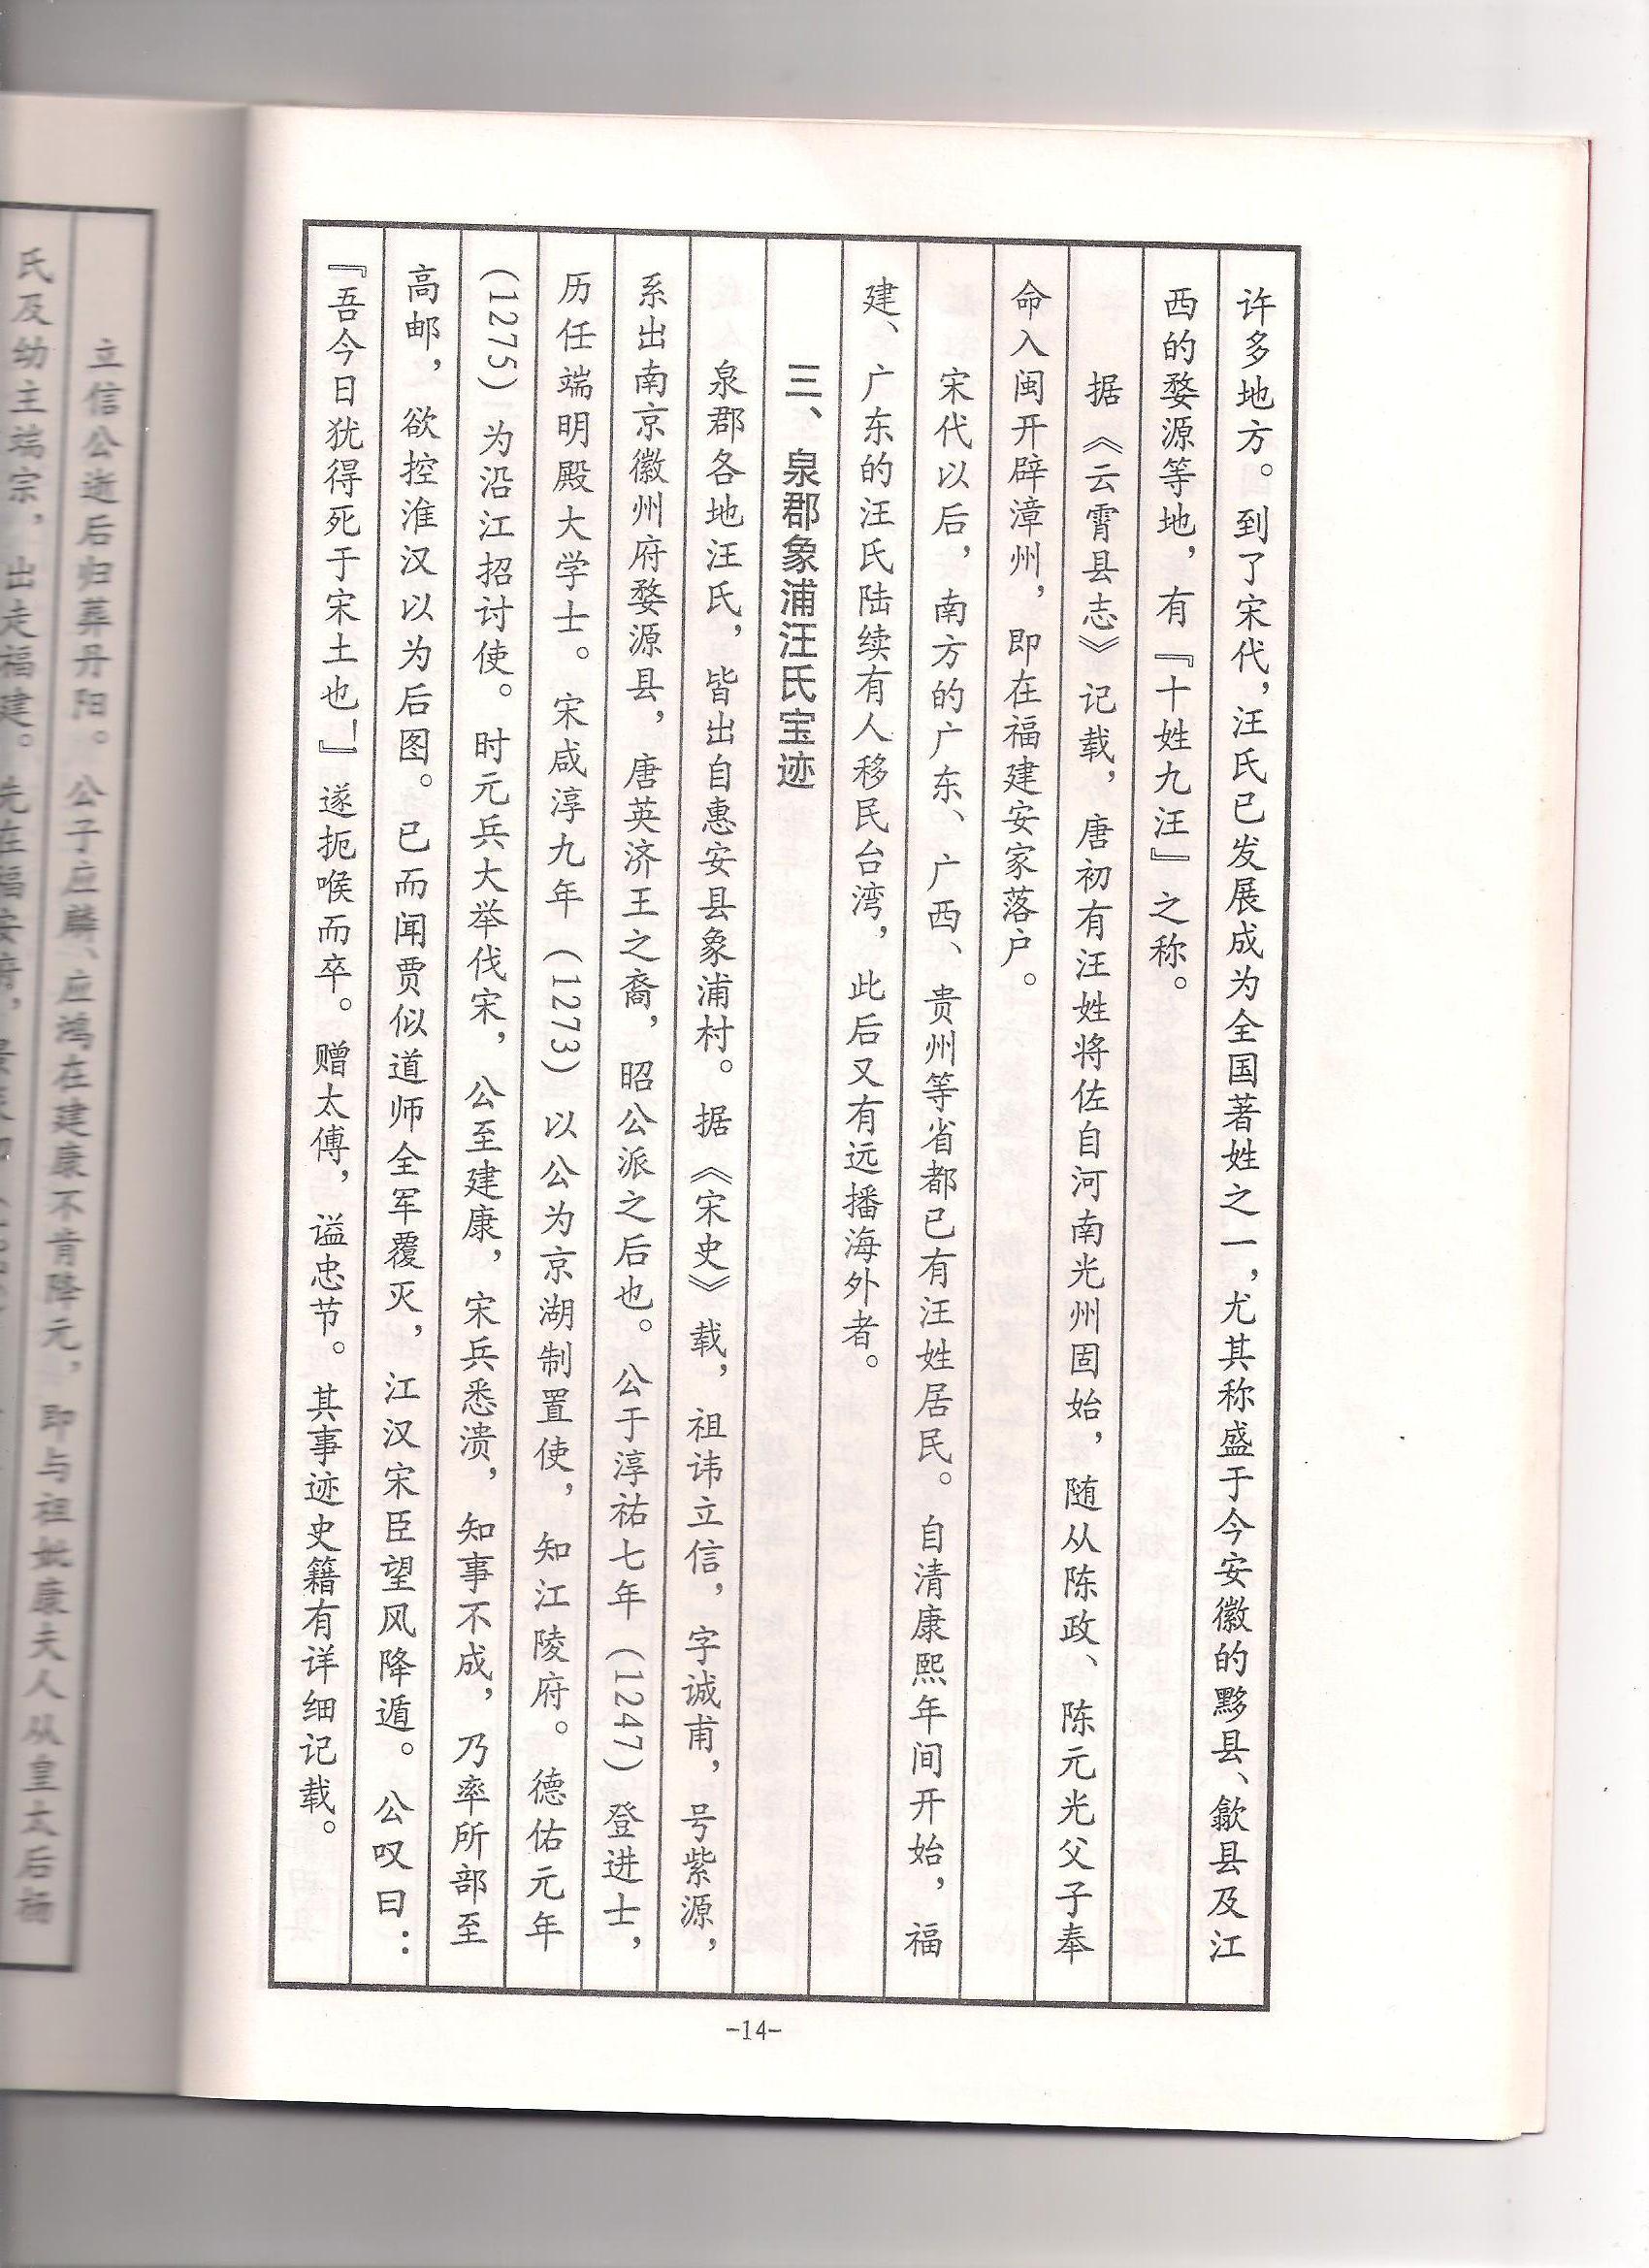 许多地方。到了宋代，汪氏已发展成为全国著姓之一，尤其称盛于今安徽的黟县、歙县及江
西的婺源等地，有『十姓九汪』之称。
据《云霄县志》记载，唐初有汪姓将佐自河南光州固始，随从陈政、陈元光父子奉
命入闽开辟漳州，即在福建安家落户。
宋代以后，南方的广东、广西、贵州等省都已有汪姓居民。自清康熙年间开始，福
建、广东的汪氏陆续有人移民台湾，此后又有远播海外者。
三、泉郡象浦汪氏宝迹
泉郡各地汪氏，皆出自惠安县象浦村。据《宋史》载，祖讳立信，字诚甫，号紫源，
系出南京徽州府婺源县，唐英济王之裔，昭公派之后也。公于淳祐七年（1247）登进士，
历任端明殿大学士。宋咸淳九年（1273）以公为京湖制置使，知江陵府。德佑元年
（1275）为沿江招讨使。时元兵大举伐宋，公至建康，宋兵悉溃，知事不成，乃率所部至
高邮，欲控淮汉以为后图。已而闻贾似道师全军覆灭，江汉宋臣望风降遁。公叹曰：
『吾今日犹得死于宋土也！』遂扼喉而卒。赠太傅，谥忠节。其事迹史籍有详细记载。
-14-
立信公逝后归葬丹阳。公子应麟、应鸿在建康不肯降元，即与祖妣康夫人从皇太后杨
氏及幼主端宗，出走福建。先在福安府，